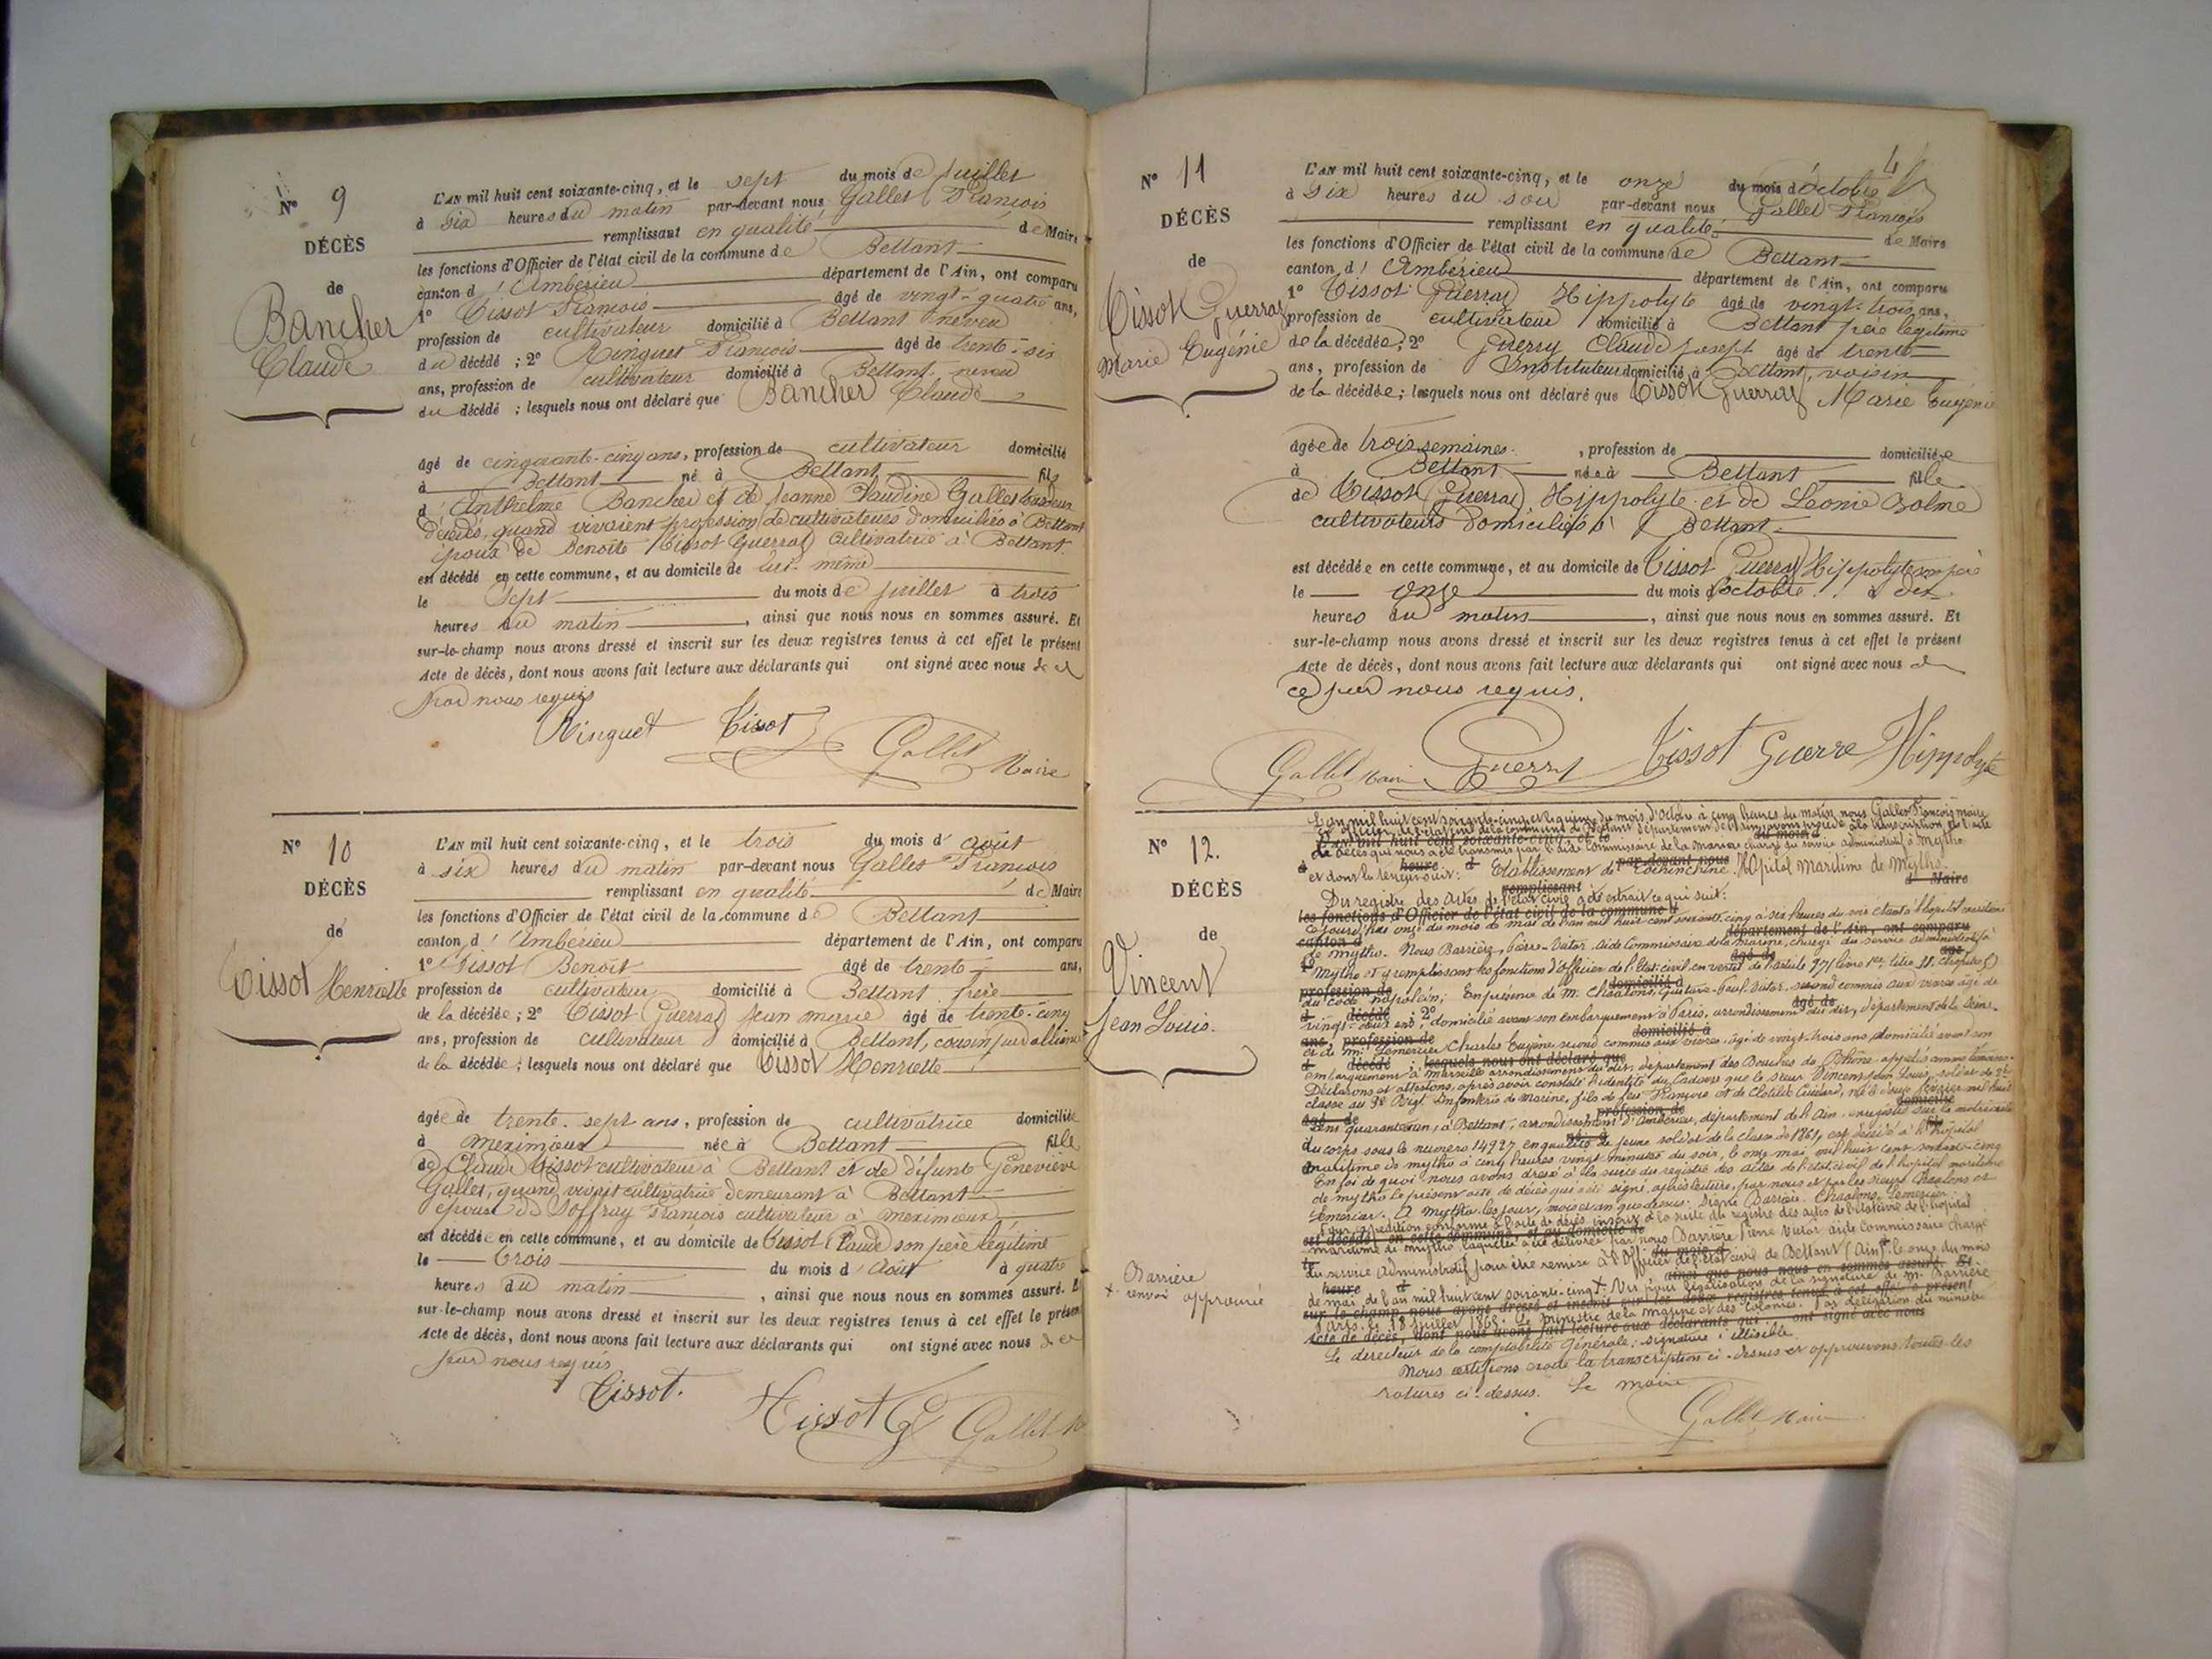 N° 9
DÉCÈS
de
Bancher
Claude
L'AN mil huit cent soixante-cinq, et le sept du mois de Juillet
à six heures du matin par-devant nous Gallet François
remplissant en qualité de Maire
les fonctions d'Officier de l'état civil de la commune de Bettant
canton d'Ambérieu département de l'Ain, ont comparu
1° Tissot François âgé de vingt-quatre ans,
profession de cultivateur domicilié à Bettant neveu
du décédé ; 2° Ringuet François âgé de trente-six
ans, profession de cultivateur domicilié à Bettant, neveu
du décédé ; lesquels nous ont déclaré que Bancher Claude
âgé de cinquante-cinq ans, profession de cultivateur domicilié
à Bettant né à Bettant fils
d'Anthelme Bancher et de Jeanne Claudine Gallet
décédés, quand vivaient profession de cultivateurs domiciliés à Bettant
époux de Benoite Tissot Guerraz cultivatrice à Bettant.
est décédé en cette commune, et au domicile de lui-même
le sept du mois de juillet à trois
heures du matin, ainsi que nous nous en sommes assuré. Et
sur-le-champ nous avons dressé et inscrit sur les deux registres tenus à cet effet le présent
Acte de décès, dont nous avons fait lecture aux déclarants qui ont signé avec nous de ce
par nous requis
Ringuet Tissot Gallet Maire
N° 10
DÉCÈS
de
Tissot Henriette
L'AN mil huit cent soixante-cinq, et le trois du mois d'août
à six heures du matin par-devant nous Gallet François
remplissant en qualité de Maire
les fonctions d'Officier de l'état civil de la commune de Bettant
canton d'Ambérieu département de l'Ain, ont comparu
1° Tissot Benoit âgé de trente ans,
profession de cultivateur domicilié à Bettant frère
de la décédée ; 2° Tissot Guerraz Jean Marie âgé de trente-cinq
ans, profession de cultivateur domicilié à Bettant, cousin par alliance
de la décédée ; lesquels nous ont déclaré que Tissot Henriette
âgée de trente-sept ans, profession de cultivatrice domiciliée
à Meximieux née à Bettant fille
de Claude Tissot cultivateur à Bettant et de défunte Geneviève
Gallet, quand vivait cultivatrice demeurant à Bettant
épouse de Soffray François cultivateur à Meximieux
est décédée en cette commune, et au domicile de Tissot Claude son père légitime
le trois du mois d'Août à quatre
heures du matin, ainsi que nous nous en sommes assuré. Et
sur-le-champ nous avons dressé et inscrit sur les deux registres tenus à cet effet le présent
Acte de décès, dont nous avons fait lecture aux déclarants qui ont signé avec nous de ce
par nous requis
Tissot. Tissot G Gallet M
4
N° 11
DÉCÈS
de
Tissot Guerraz
Marie Eugénie
L'AN mil huit cent soixante-cinq, et le onze du mois d'Octobre
à six heures du soir par-devant nous Gallet François
remplissant en qualité de Maire
les fonctions d'Officier de l'état civil de la commune de Bettant
canton d'Ambérieu département de l'Ain, ont comparu
1° Tissot Guerraz Hippolyte âgé de vingt-trois ans,
profession de cultivateur domicilié à Bettant père légitime
de la décédée ; 2° Guerry Claude Joseph âgé de trente
ans, profession de Instituteur domicilié à Bettant, voisin
de la décédée ; lesquels nous ont déclaré que Tissot Guerraz Marie Eugénie
âgée de trois semaines, profession de domiciliée
à Bettant née à Bettant fille
de Tissot Guerraz Hippolyte et de Léonie Bolme
cultivateurs domiciliés à Bettant
est décédée en cette commune, et au domicile de Tissot Guerraz Hippolyte son père
le onze du mois d'octobre à dix
heures du matin, ainsi que nous nous en sommes assuré. Et
sur-le-champ nous avons dressé et inscrit sur les deux registres tenus à cet effet le présent
Acte de décès, dont nous avons fait lecture aux déclarants qui ont signé avec nous de
ce par nous requis.
Gallet Maire Guerry Tissot Guerre Hippolyte
N° 12.
DÉCÈS
de
Vincent
Jean Louis.
L'an mil huit cent soixante-cinq et le quinze du mois d'octobre à cinq heures du matin, nous Gallet François maire
et officier de l'état civil de la commune de Bettant département de l'Ain, avons procédé à la transcription de l'acte
de décès qui nous a été transmis par l'aide Commissaire de la marine chargé du service administratif à Mytho
et dont la teneur suit: Etablissement de Cochinchine. Hôpital Maritime de Mytho.
Du registre des Actes de l'état civil a été extrait ce qui suit:
Ce jourd'hui onze du mois de mai de l'an mil huit cent soixante-cinq à six heures du soir étant à l'hôpital maritime
de Mytho. Nous Barrière, Pierre-Victor, Aide Commissaire de la Marine, chargé du service administratif à
Mytho et y remplissant les fonctions d'officier de l'état civil en vertu de l'article 97, livre 1er, titre II. chapitre 5
du Code Napoléon; En présence de M. Chaalons, Gustave-Paul-Victor, second commis aux vivres âgé de
vingt-deux ans, domicilié avant son embarquement à Paris, arrondissement du dit, département de la Seine.
et de M. Lemercier Charles Eugène second commis aux vivres, âgé de vingt-trois ans domicilié avant son
embarquement à Marseille arrondissement du dit, département des Bouches du Rhône. appelés comme témoins.
Déclarons et attestons, après avoir constaté l'identité du Cadavre que le sieur Vincent, Jean Louis, soldat de 2e
classe au 3e Rég't Infanterie de Marine, fils de feu François et de Clotilde, né le février mil huit
cent quarante-un, à Bettant, arrondissement d'Ambérieu, département de l'Ain. enregistré sur la matricule
du corps sous le numéro 14927, en qualité de jeune soldat de la classe de 1861, est décédé à l'hôpital
maritime de Mytho à cinq heures vingt minutes du soir, le onze mai, mil huit cent soixante-cinq
En foi de quoi nous avons dressé à la suite du registre des actes de l'état civil de l'hôpital maritime
de Mytho le présent acte de décès qui a été signé, après lecture, par nous et par les sieurs Chaalons et
Lemercier. A Mytho les jour, mois et an que dessus: signé Barrière. Chaalons, Lemercier
Pour expédition conforme à l'acte de décès inscrit à la suite du registre des actes de l'état civil de l'hôpital
maritime de Mytho, laquelle a été délivrée par nous Barrière Pierre Victor aide Commissaire chargé
du service Administratif pour être remise à l'Officier de l'état civil de Bettant (Ain). le onze du mois
de mai, de l'an mil huit cent soixante-cinq + Vu pour légalisation de la signature de M. Barrière
Paris, le 18 Juillet 1865. Le Ministre de la Marine et des Colonies. Par délégation du Ministre
Le directeur de la comptabilité générale: signature illisible.
Nous certifions exacte la transcription ci-dessus et approuvons toutes les
ratures ci-dessus. Le Maire
Gallet Maire
Barrière
+ renvoi approuvé